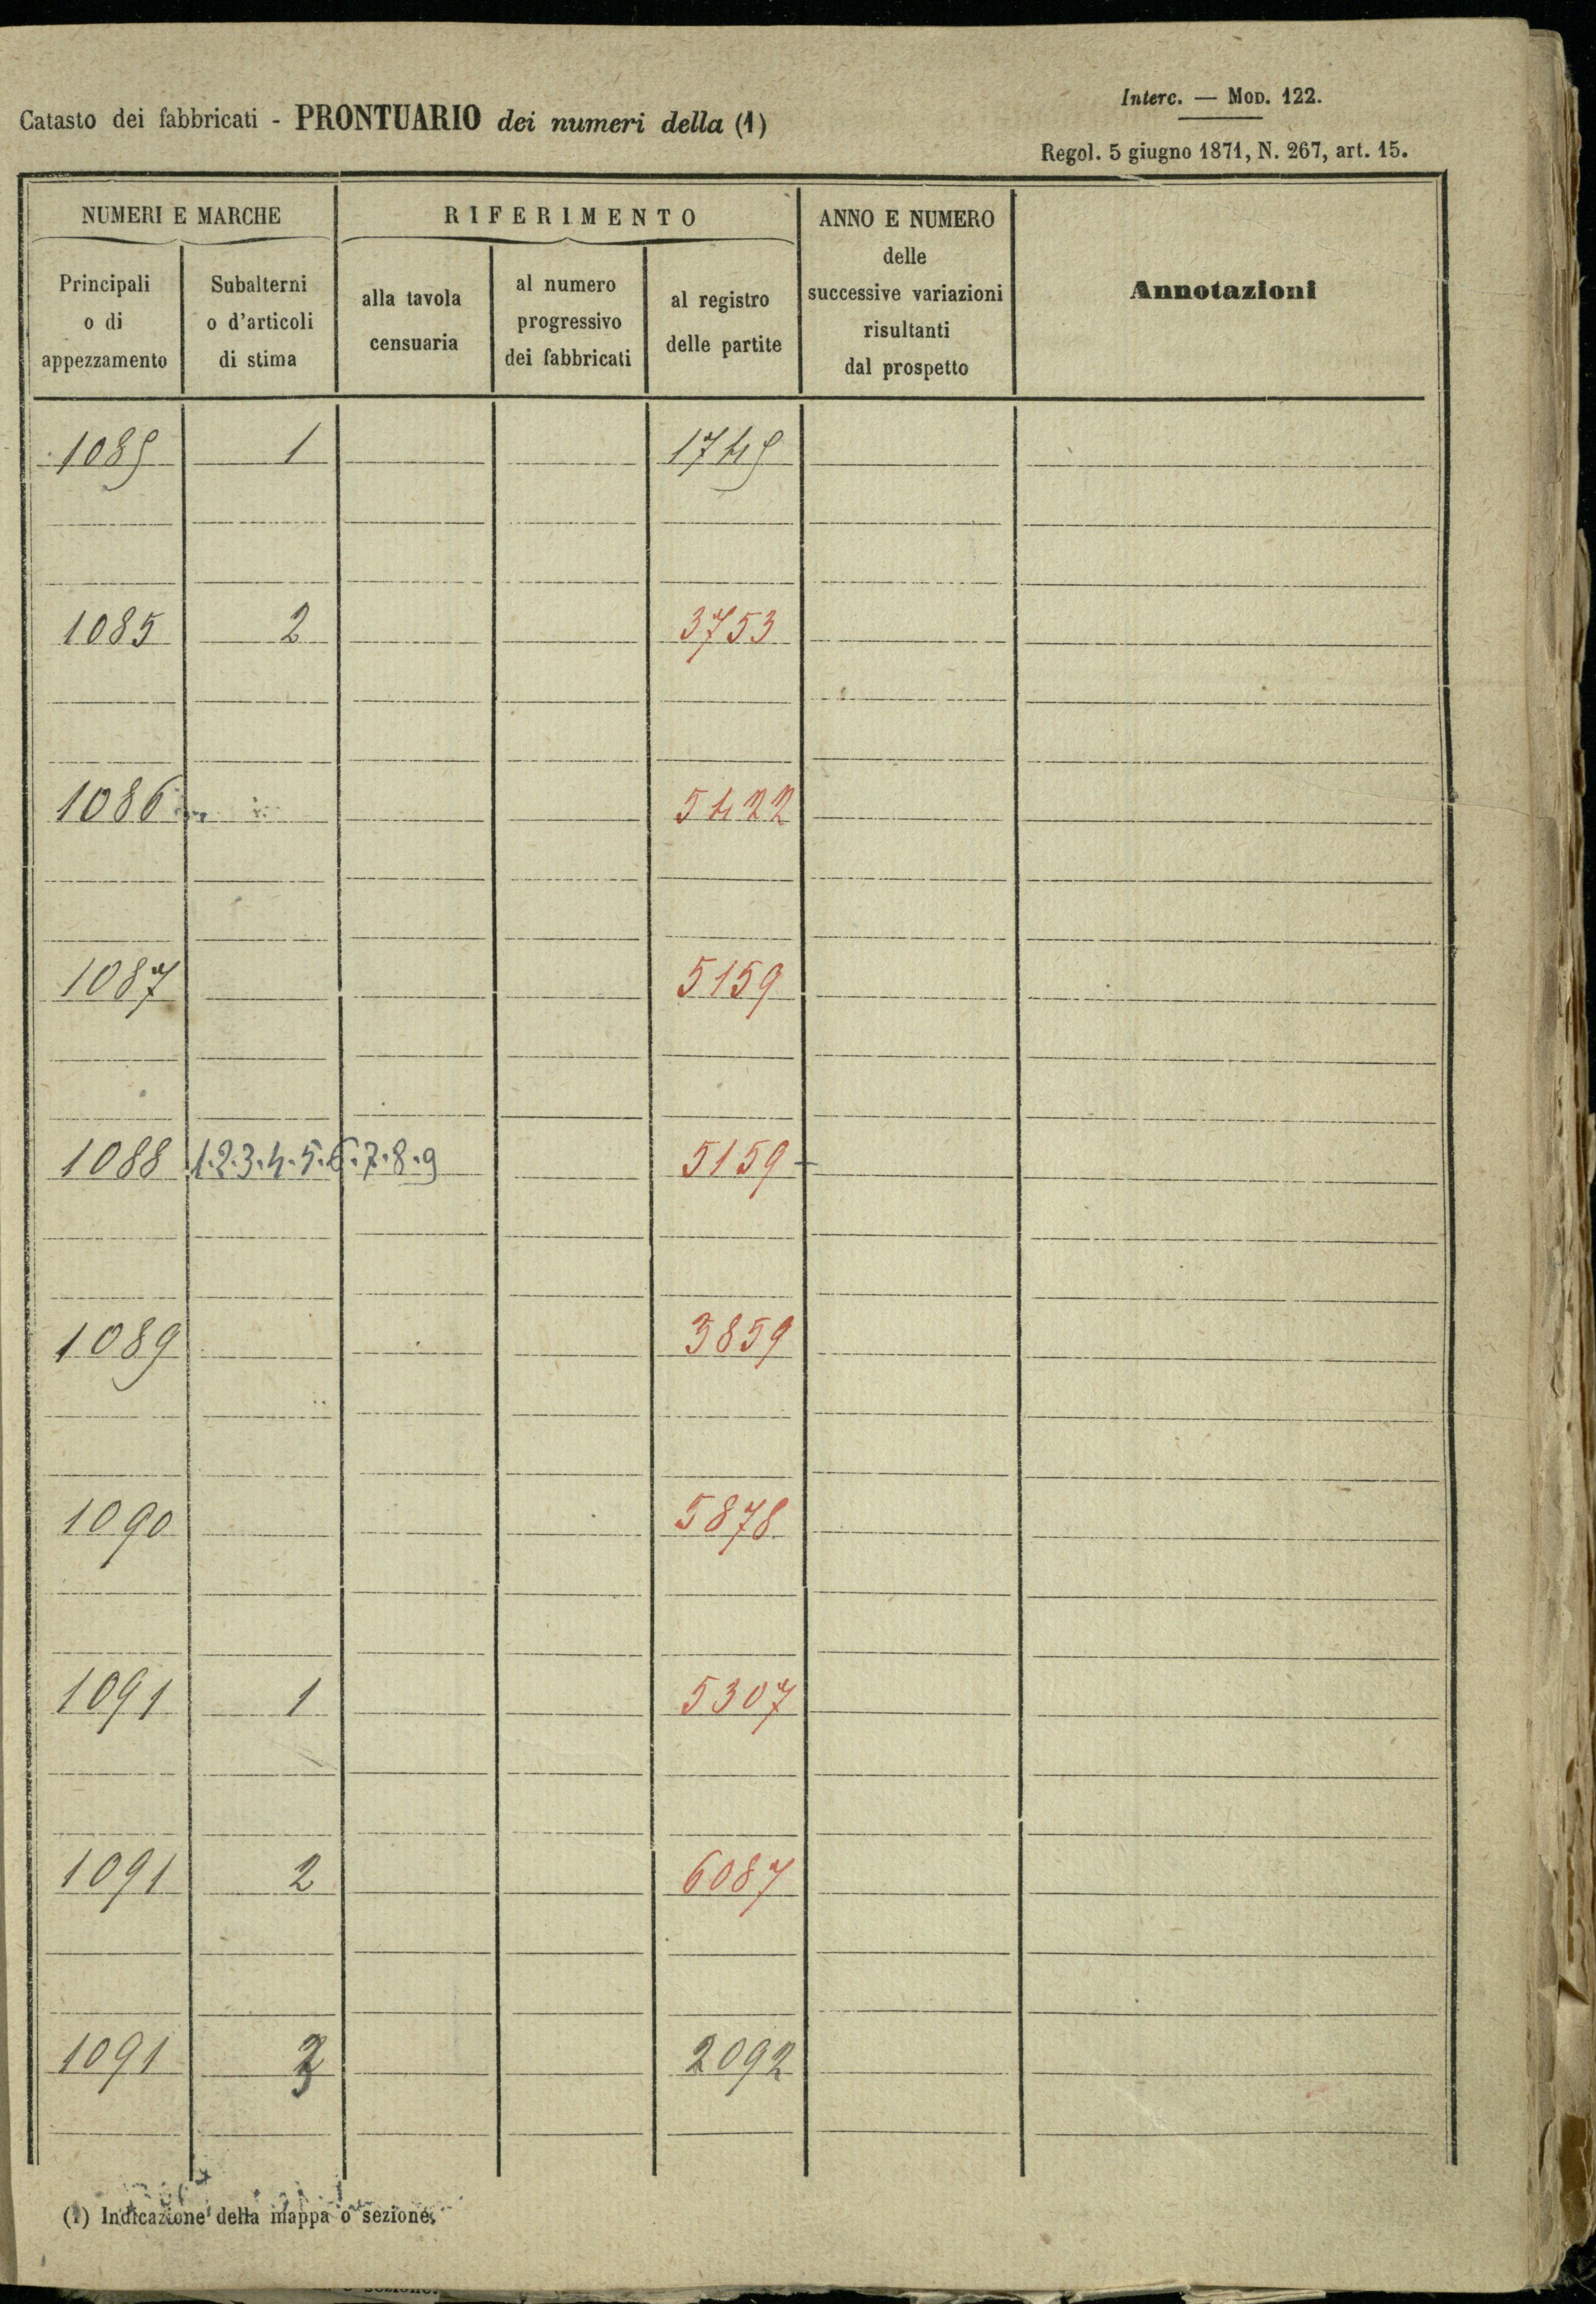 Interc. — Mod. 122.
Catasto dei fabbricati - PRONTUARIO dei numeri della (1)
Regol. 5 giugno 1871, N. 267, art. 15.
NUMERI E MARCHE
RIFERIMENTO
ANNO E NUMERO
delle
successive variazioni
risultanti
dal prospetto
Annotazioni
Principali
o di
appezzamento
Subalterni
o d'articoli
di stima
alla tavola
censuaria
al numero
progressivo
dei fabbricati
al registro
delle partite
1085 1 1745
1085 2 3753
1086 5422
1087 5159
1088 1.2.3.4.5.6.7.8.9 5159
1089 3859
1090 5878
1091 1 5307
1091 2 6087
1091 3 2092
(1) Indicazione della mappa o sezione.
sezione.